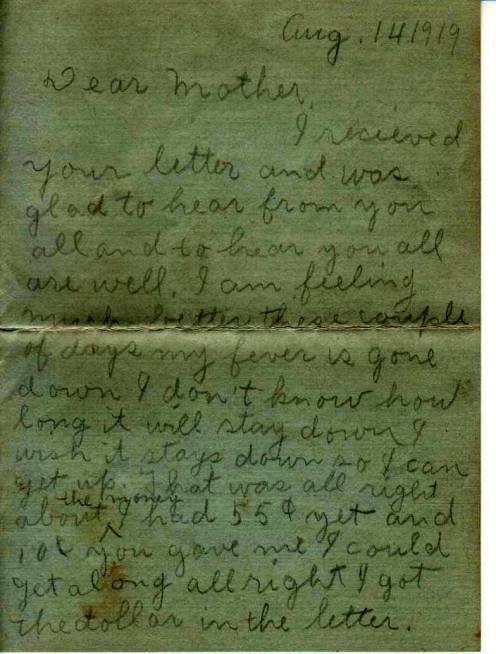 Aug. 14 1919
Dear Mother,
I resieved
your letter and was
glad to hear from you
all and to hear you all
are well. I am feeling
much better these couple
of days my fever is gone
down I don't know how
long it will stay down I
wish it stays down so I can
get up. That was all right
about the money I had 55¢ yet and
10¢ you gave me I could
get along allright I got
the dollar in the letter.